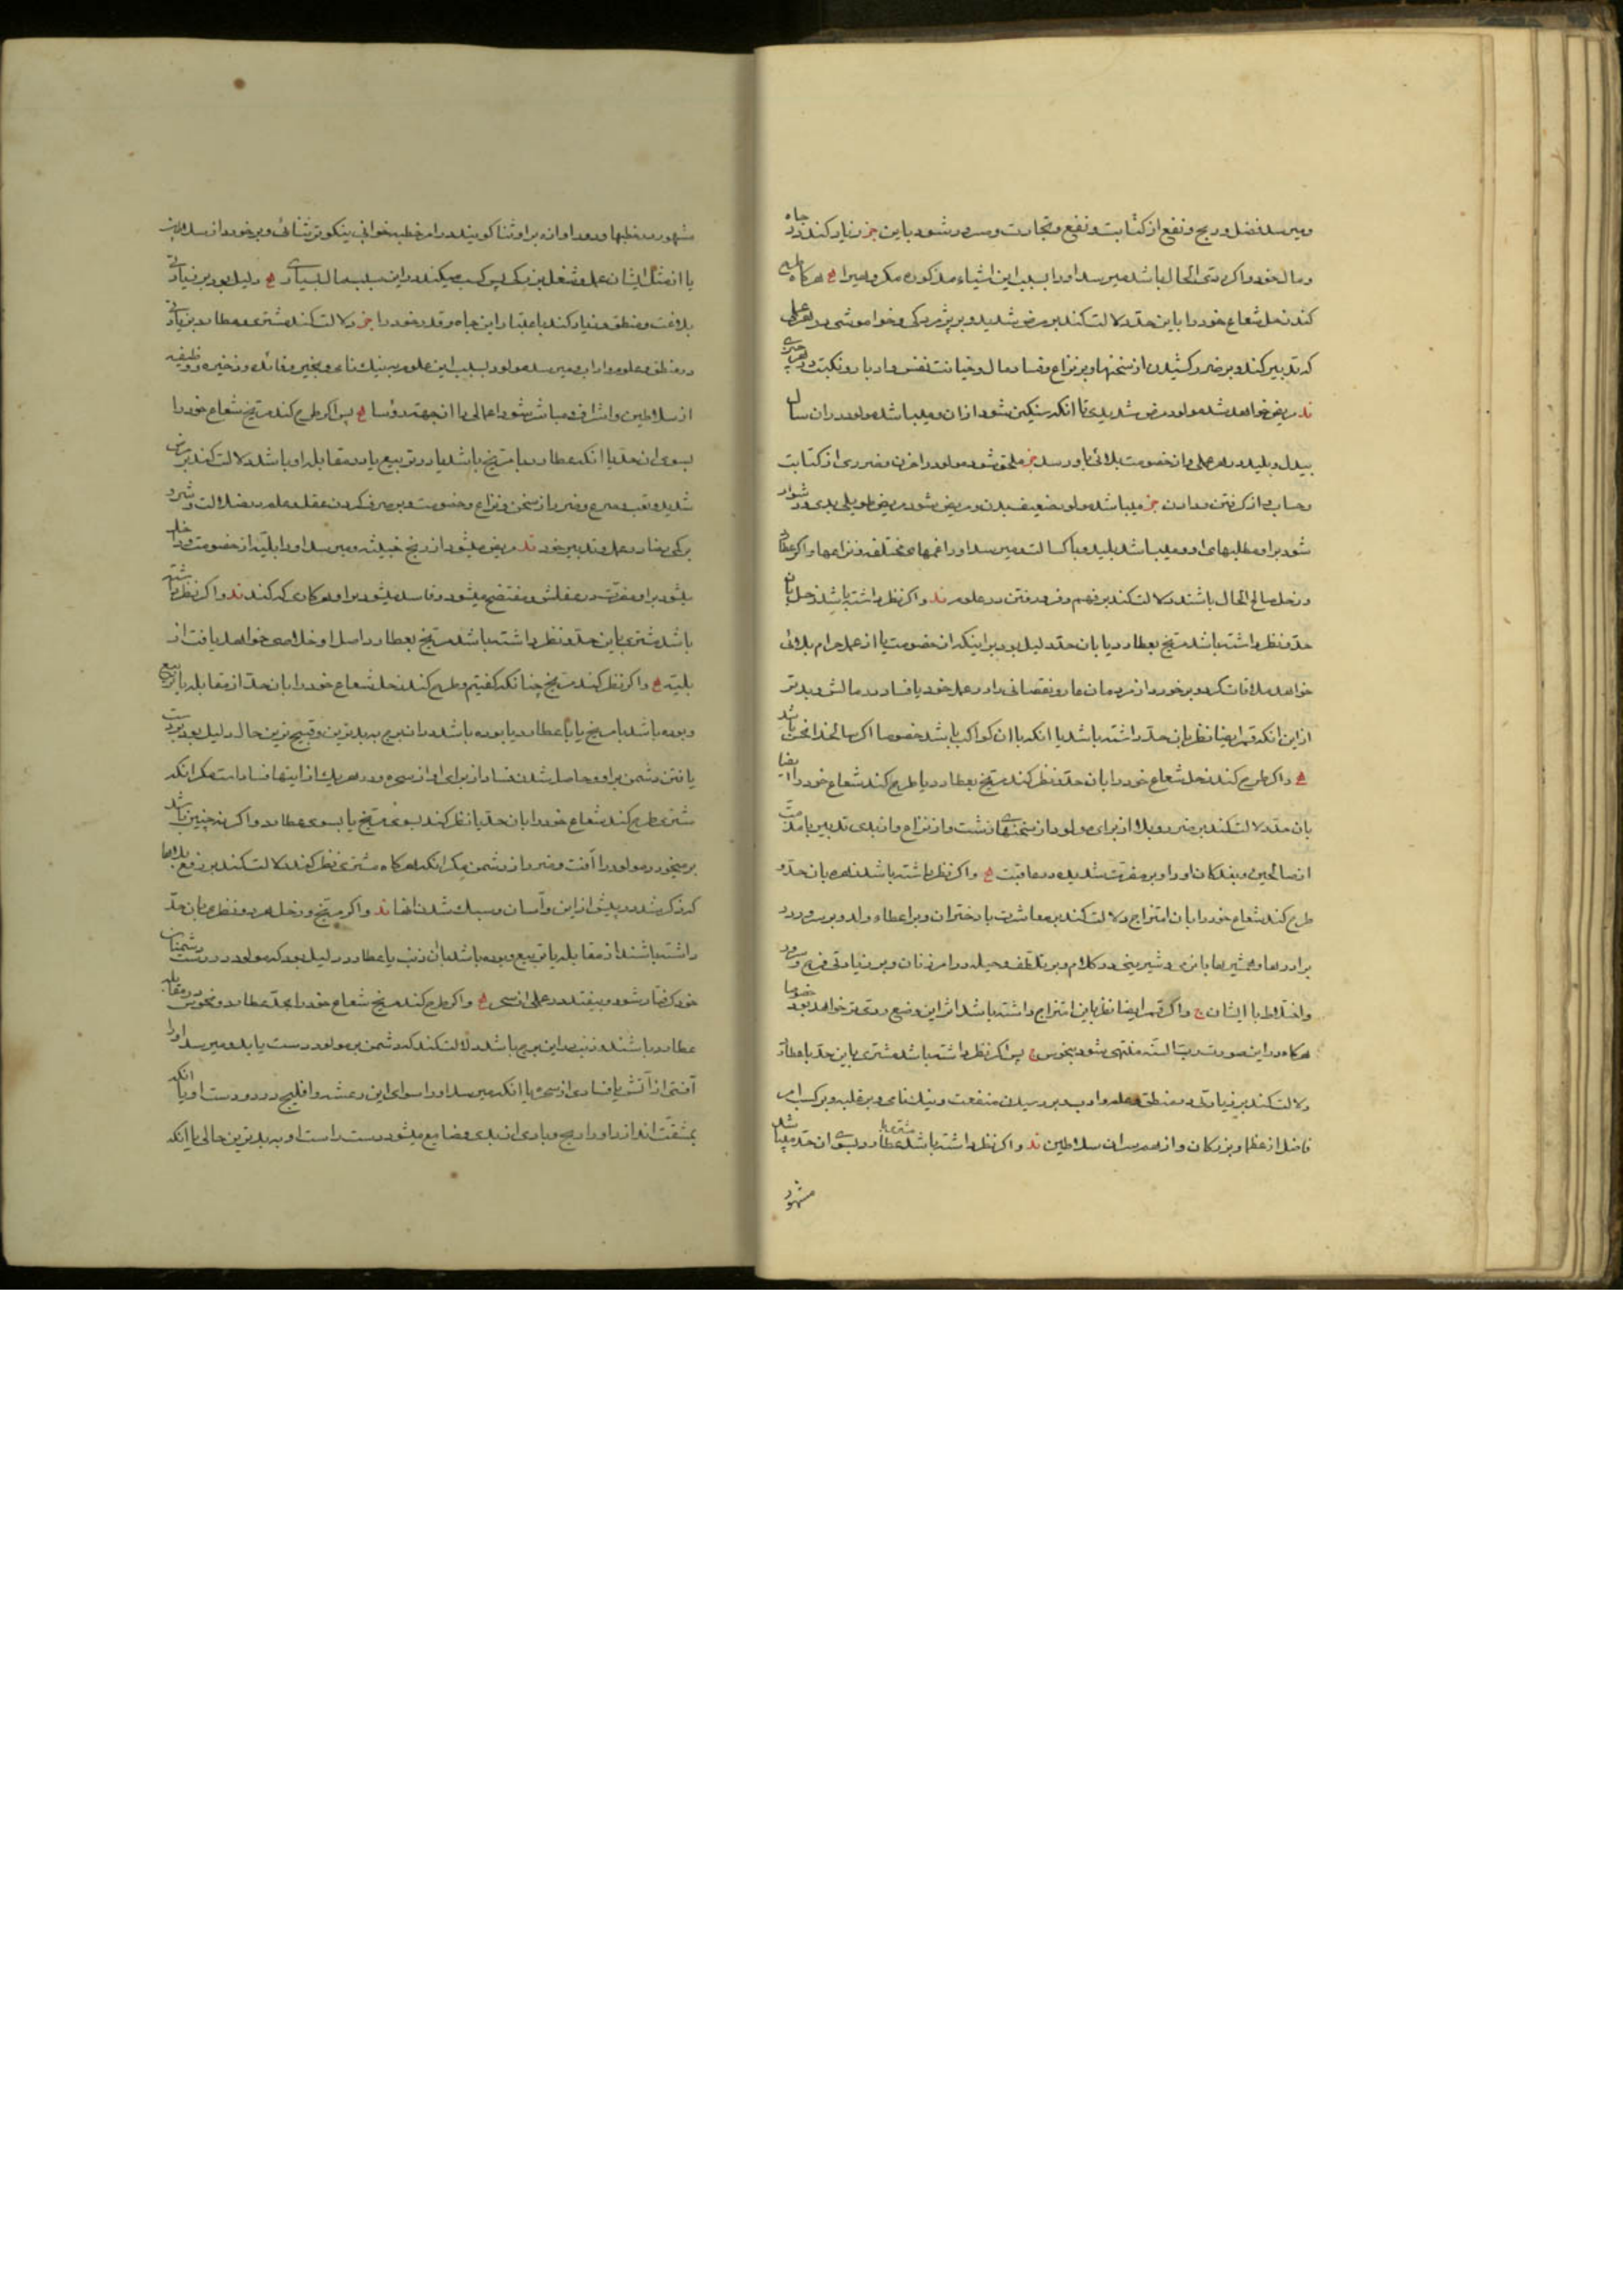 و میرسد فضل و ربح و نفع از کتابت و نفع و تجارت و مسرور شود باین جز زیاد کند در جاه
و مال خود و اگر ردی الحال باشد میرسد او را بسبب این اشیاء مذکوره مکروهیرا ح هرکاه طرح
کند زحل شعاع خود را باین حد دلالت کند بر مرض شدید و بر پژمردکی و خواموشی در هر عملی
که تدبیر کند و بر ضرر کشیدن از سخنها و بر نزاع و فساد مال و خیانت نفس و ادبار و نکبت در هر چیزی
ند مریض خواهد شد مولود مرض شدیدی تا انکه سنکین شود ازان و میباشد مولود دران سال
بیدل و بلید در هر عملی و از خصومت بلائی باو رسد جز ملحق شود مولود را حزن و ضرری از کتابت
و حساب و از کرفتن و دادن جز میباشد مولود ضعیف بدن و مریض شود مریض طویلی بدی و دشوار
شود براو مطلبهای او و میباشد بلید و با کسالت و میرسد او را غمهای مختلفه و نزاعها و اکر عطارد
و زحل صالح الحال باشند دلالت کند بر فهم و فرو رفتن در علوم ند و اکر نظر داشته باشد زحل بان
حد و نظر داشته باشد مریخ بعطارد یا بان حد دلیل بود بر اینکه از خصومت یا از عمل حرام بلائی
خواهد ملاقات کرد و بر خورد از مردمان عار و نقصانی را در عمل خود یا فساد در مالش و بدتر
از این انکه قمر ایضا نظر بان حد داشته باشد یا انکه با ان کواکب باشد خصوصا اکر صاحب انحس باشد
ح و اکر طرح کند زحل شعاع خود را بان حد و نظر کند مریخ بعطارد یا طرح کند شعاع خود را ایضا
بان حد دلالت کند بر ضرر و بلا از برای مولود از سخنهای زشت و از نزاع و از بدی تدبیر یا مذمت
از صالحین و بفلکان او را و بر مضرت شدیده در عاقبت ح و اکر نظر داشته باشد زهره بان حد و
طرح کند شعاع خود را بان امتزاج دلالت کند بر معاشرت با دختران و بر اعطاء ولد و بر سرور
برادرها و همشیرها باین و شیرینی در کلام و بر تلطف و حیله در امر زنان و بر زیادتی فرح و سرور
و اختلاط با ایشان و اکر قمر ایضا نظر باین امتزاج داشته باشد اثر این وضع ردی تر خواهد بود خصوصا
هرکاه در این صورت رب السنه منتهی شود بنحوس پس اکر نظر داشته باشد مشتری باین حد یا عطارد
دلالت کند بر زیادتی در منطق و علم و ادب و بر رسیدن منفعت و نیک نامی و بر غلبه و بر کسب امر
فاضل از عظما و بزرکان و از هم سران سلاطین ند و اکر نظر داشته باشد مشتری با عطارد بسوی ان حد میباشد
مشهور
مشهور در خطبها و بعد اوازه براو ثنا کویند در امر خطبه خوانی بنکوتر ثنائی و بر خورد از سلاطین
یا از مثل ایشان عمل و شغل بزرکی پس کسب میکند در این سبب مال بسیاری ح دلیل بود بر زیادتی
بلاغت و منطق و زیاد کند باعتبار این جاه و قدر خود را جز دلالت کند مشتری و عطارد بر زیادتی
در منطق و علوم و اداب و میرسد مولود بسبب این علوم به نیک نامی و بخیر و فائده و ذخیره و وظیفه
از سلاطین و اشراف و مباشر شود اعمالی را از جهت رؤسا ح پس اکر طرح کند مریخ شعاع خود را
بسوی ان حد یا انکه عطارد با مریخ باشد یا در تربیع یا در مقابله او باشد دلالت کند بر مرض
شدید و تعب و صرع و ضرر از سخن و نزاع و خصومت و بر صرف کردن عقل و علم در ضلالت و شرور
برکی بضار در عمل و تدبیر خود ند مریض میشود از ریح خبیثه و میرسد او را بلیه از خصومت و داخل
میشود براو مضرت در عقلش و مفتضح میشود و فاسد میشود براو هر کاری که کند ند و اکر نظر داشته
باشد مشتری باین حد و نظر داشته باشد مریخ بعطارد راصد او خلاصی خواهد یافت از
بلیه ح و اکر نظر کند مریخ چنانکه کفتیم و طرح کند زحل شعاع خود را بان حد از مقابله یا تربیع
و بوده باشد با مریخ یا با عطارد یا بوده باشد دران برج بدترین و قبیح ترین حال دلیل بود بر دست
یافتن دشمن براو و حاصل شدن فساد از برای او از سحر و در هر یک از اینها فسادات مکر انکه
مشتری طرح کند شعاع خود را بان حد یا نظر کند بسوی مریخ یا بسوی عطارد و اکر نه چنین باشد
بر میخورد مولود را آفت و ضرر از دشمن مکر انکه هرکاه مشتری نظر کند دلالت کند بر رفع بلاها
که ذکر شد در پیش از این و آسان و سبک شدن انها ند و اکر مریخ و زحل هر دو نظر بان حد
داشته باشند از مقابله یا تربیع و بوده باشد بان ذنب یا عطارد دلیل بود که مولود در دست دشمنان
خود کرفتار شود و بیفتد در علی از سحر ح و اکر طرح کند مریخ شعاع خود را بحد عطارد و نحوس در مقابله
عطارد باشند و ذنب در این برج باشد دلالت کند که دشمن بر مولود دست یابد و میرسد او را
آفتی از آتش یا فسادی از سحر یا انکه میرسد او را سوای این رعشه و افلیج در دو دست او یا انکه
بمشقت اندازد او را ریح و بادی از بدی و ضایع میشود دست راست او به بدترین حالی یا انکه